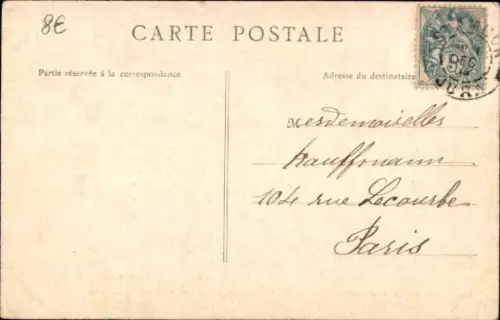 8€
CARTE POSTALE
Partie réservée à la correspondance
Adresse du destinataire
Mesdemoiselles
Kauffmann
104 rue Lecourbe
Paris
JURA